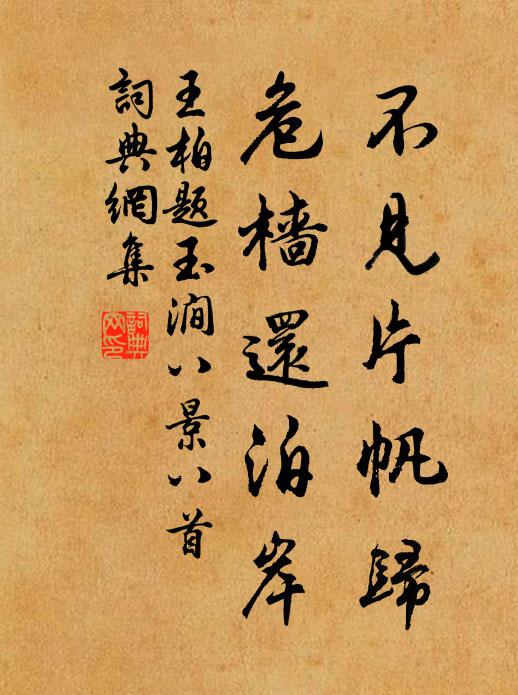 不見片帆歸
危檣還泊岸
王柏題玉澗八景八首
詞典網集
詞典網印